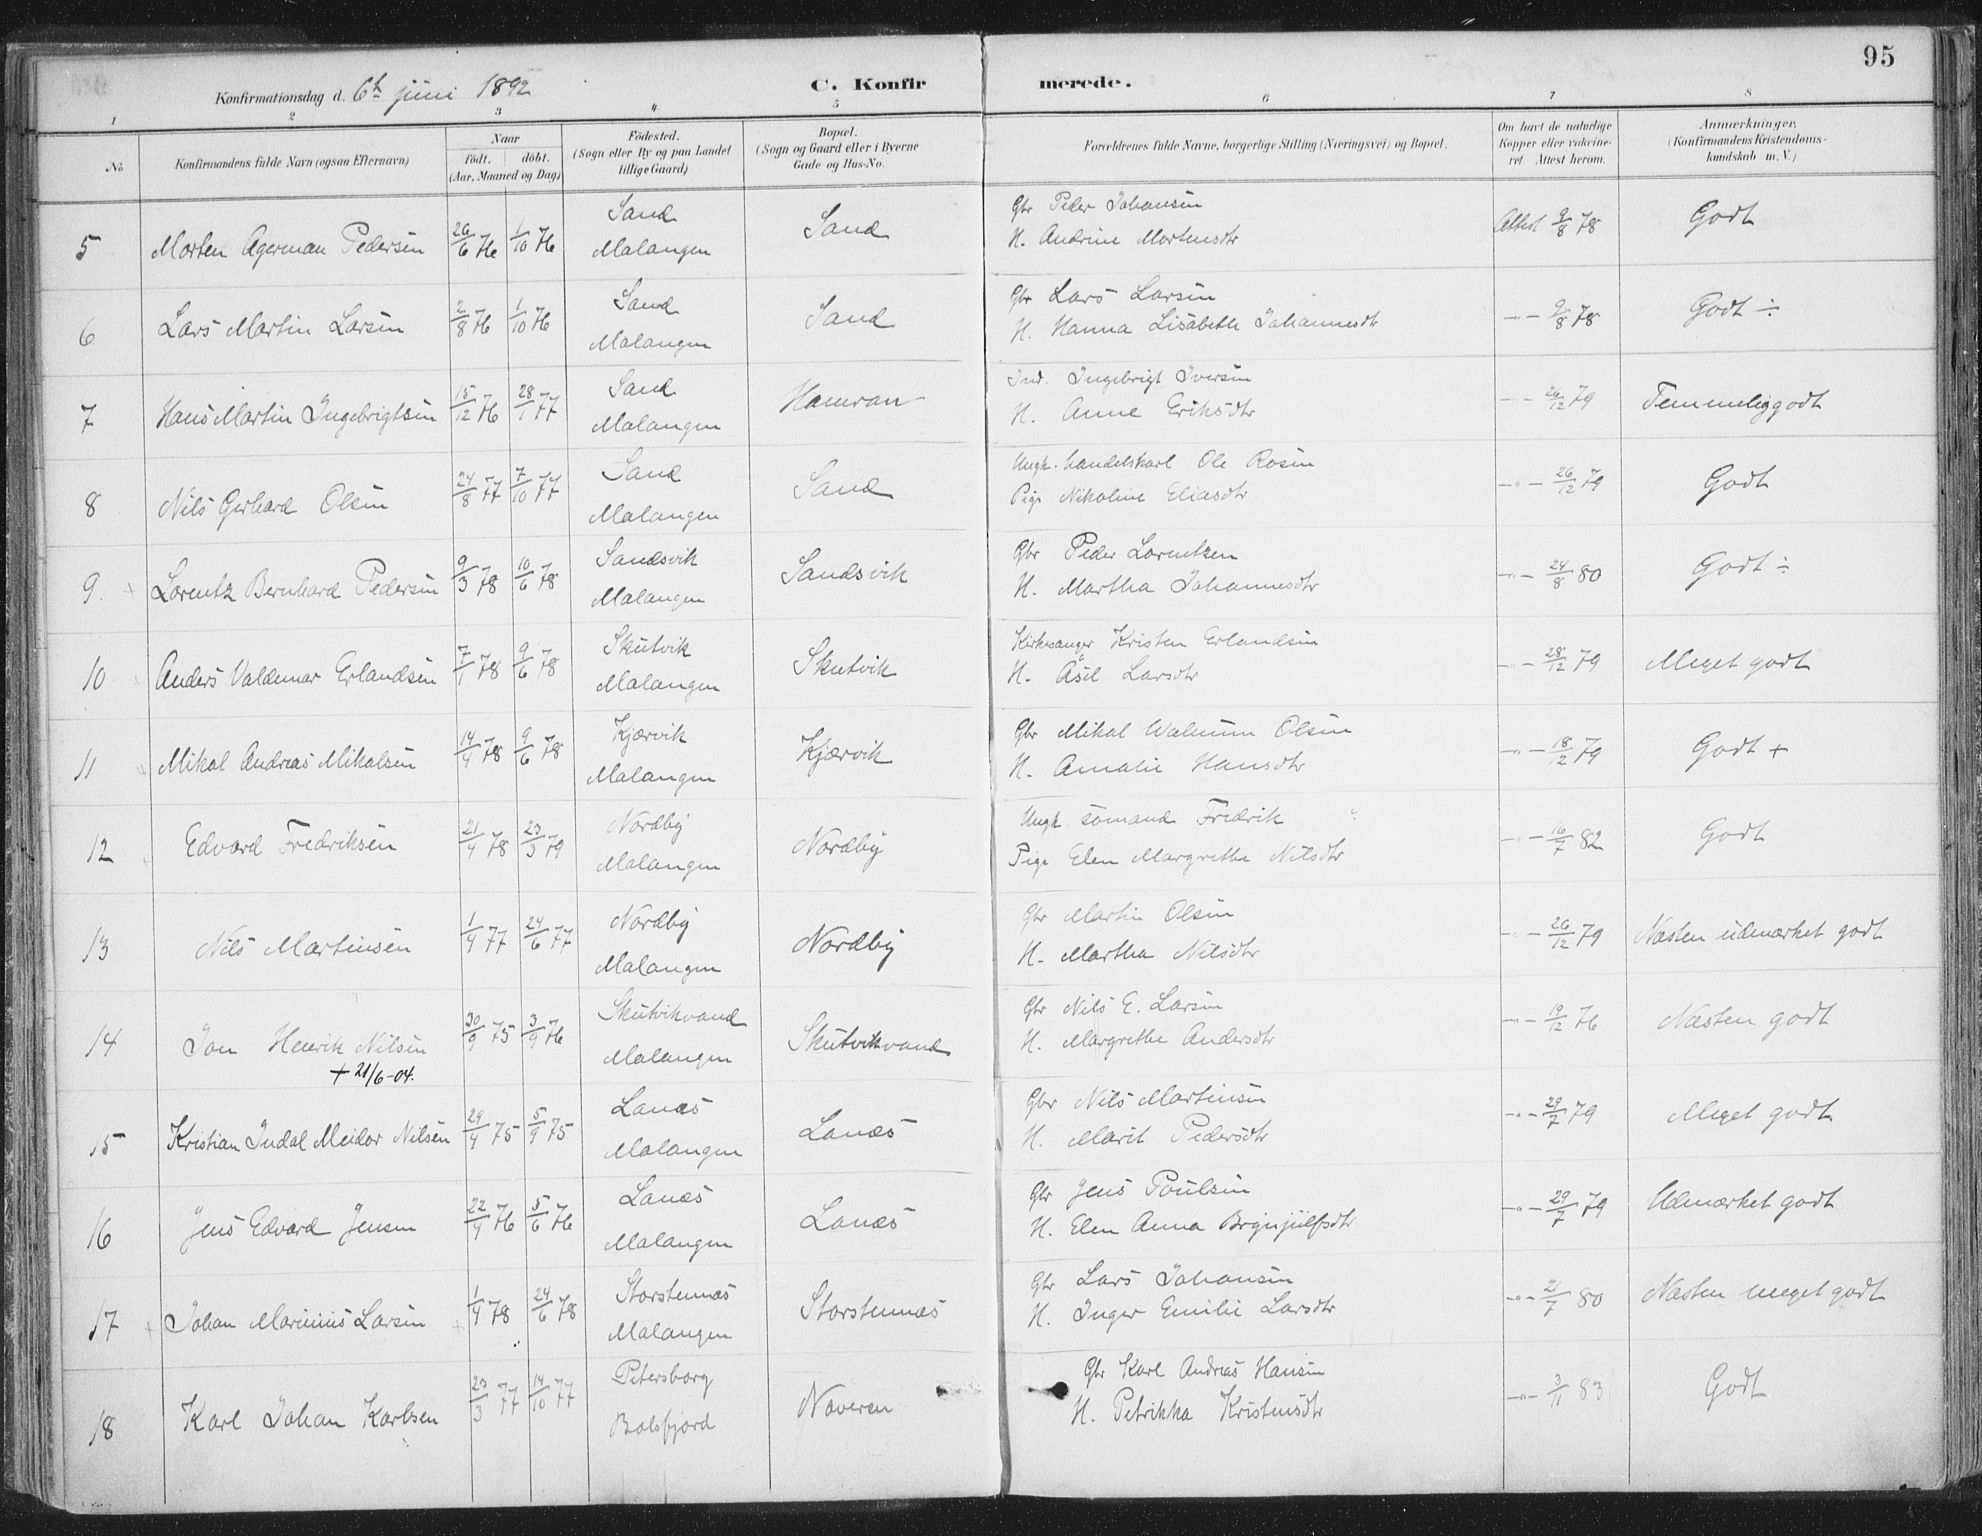 95
Konfirmationsdag d. 6t juni 1892
C. Konfirmerede.
1 2 3 4 5 6 7 8
No. Konfirmandens fulde Navn (ogsaa Efternavn) Naar födt. döbt. (Aar, Maaned og Dag) Födested. (Sogn eller By og paa Landet tillige Gaard) Bopæl. (Sogn og Gaard eller i Byerne Gade og Hus-No. Forældrenes fulde Navne, borgerlige Stilling (Næringsvei) og Bopæl. Om havt de naturlige Kopper eller vakcineret Attest herom. Anmærkninger. (Konfirmandens Kristendomskundskab m. V.)
5 Morten Agerman Pedersen 26/6 76 1/10 76 Sand Malangen Sand Gbr Peder Johansen H. Andrine Mortensdtr Attest 9/8 78 Godt
6 Lars Martin Larsen 2/8 76 1/10 76 Sand Malangen Sand Gbr Lars Larsen H. Hanna Lisabeth Johannesdtr -"- 9/8 78 Godt ÷
7 Hans Martin Ingebrigtsen 15/12 76 28/1 77 Sand Malangen Hamran Ind. Ingebrigt Iversen H. Anne Eriksdtr -"- 26/12 79 Temmelig godt
8 Nils Gerhard Olsen 24/8 77 7/10 77 Sand Malangen Sand Ungk. handelskarl Ole Rosen Pige Nikoline Eliasdtr -"- 26/12 79 Godt
9. + Lorentz Bernhard Pedersen 9/3 78 10/6 78 Sandsvik Malangen Sandsvik Gbr Peder Lorentzen H. Martha Johannesdtr -"- 24/8 80 Godt ÷
10 Anders Valdemar Erlandsen 7/1 78 9/6 78 Skutvik Malangen Skutvik Kirkesanger Kristen Erlandsen H. Åsil Larsdtr -"- 28/12 79 Meget godt
11 Mikal Andreas Mikalsen 14/4 78 9/6 78 Kjærvik Malangen Kjærvik Gbr Mikal Walnum Olsen H. Amalie Hansdtr -"- 18/12 79 Godt +
12 Edvard Fredriksen 21/4 78 23/3 79 Nordby Malangen Nordby Ungk. sömand Fredrik Pige Elen Margrethe Nilsdtr -"- 16/7 82 Godt
13 Nils Martinsen 1/4 77 24/6 77 Nordby Malangen Nordby Gbr Martin Olsen H. Martha Nilsdtr -"- 26/12 79 Næsten udmærket godt
14 Jon Henrik Nilsen + 21/6-04. 30/9 75 3/9 76 Skutvikvand Malangen Skutvikvand Gbr Nils E. Larsen H. Margrethe Andersdtr -"- 19/12 76 Næsten godt
15 Kristian Indal Meidor Nilsen 29/4 75 5/9 75 Lanæs Malangen Lanæs Gbr Nils Martinsen H. Marit Pedersdtr -"- 29/7 79 Meget godt
16 Jens Edvard Jensen 22/4 76 5/6 76 Lanæs Malangen Lanæs Gbr Jens Poulsen H. Elen Anna Brynjulfsdtr -"- 29/7 79 Udmærket godt
17 + Johan Marinius Larsen 1/4 78 24/6 78 Storstennæs Malangen Storstennæs Gbr Lars Johansen H. Inger Emilie Larsdtr -"- 21/7 80 Næsten meget godt
18 Karl Johan Karlsen 23/3 77 14/10 77 Petersborg Balsfjord Naveren Gbr Karl Andreas Hansen H. Petrikka Kristensdtr -"- 3/11 83 Godt